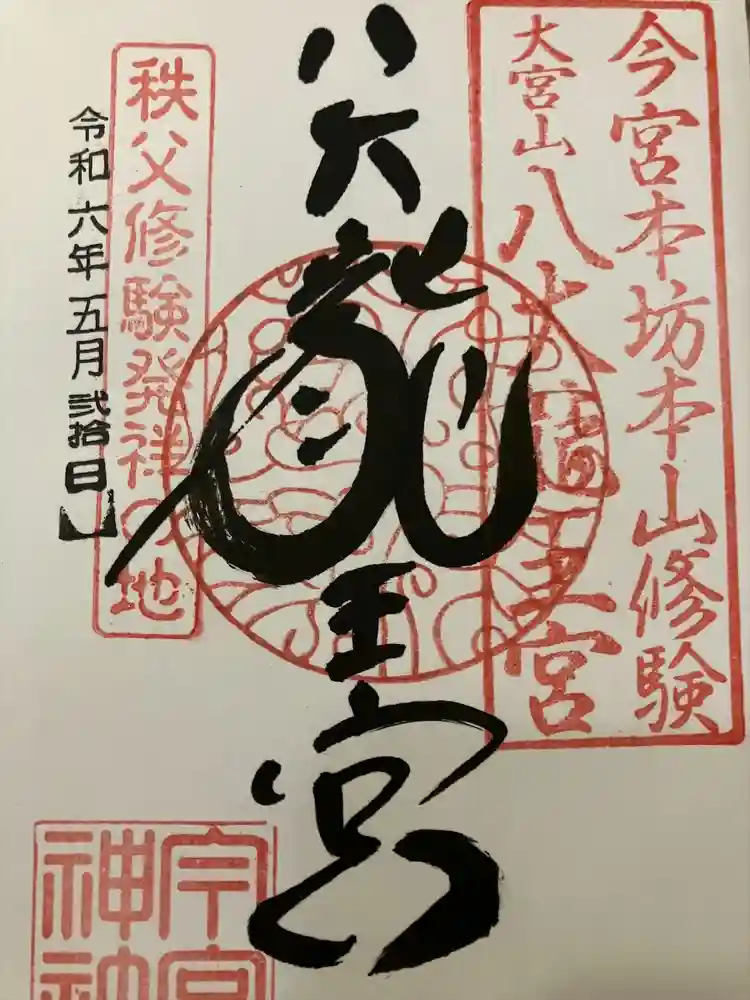 今宮本坊本山修験
大宮山八大龍王宮
八大龍王宮
秩父修験発祥の地
令和六年五月弐拾日
今宮
神社